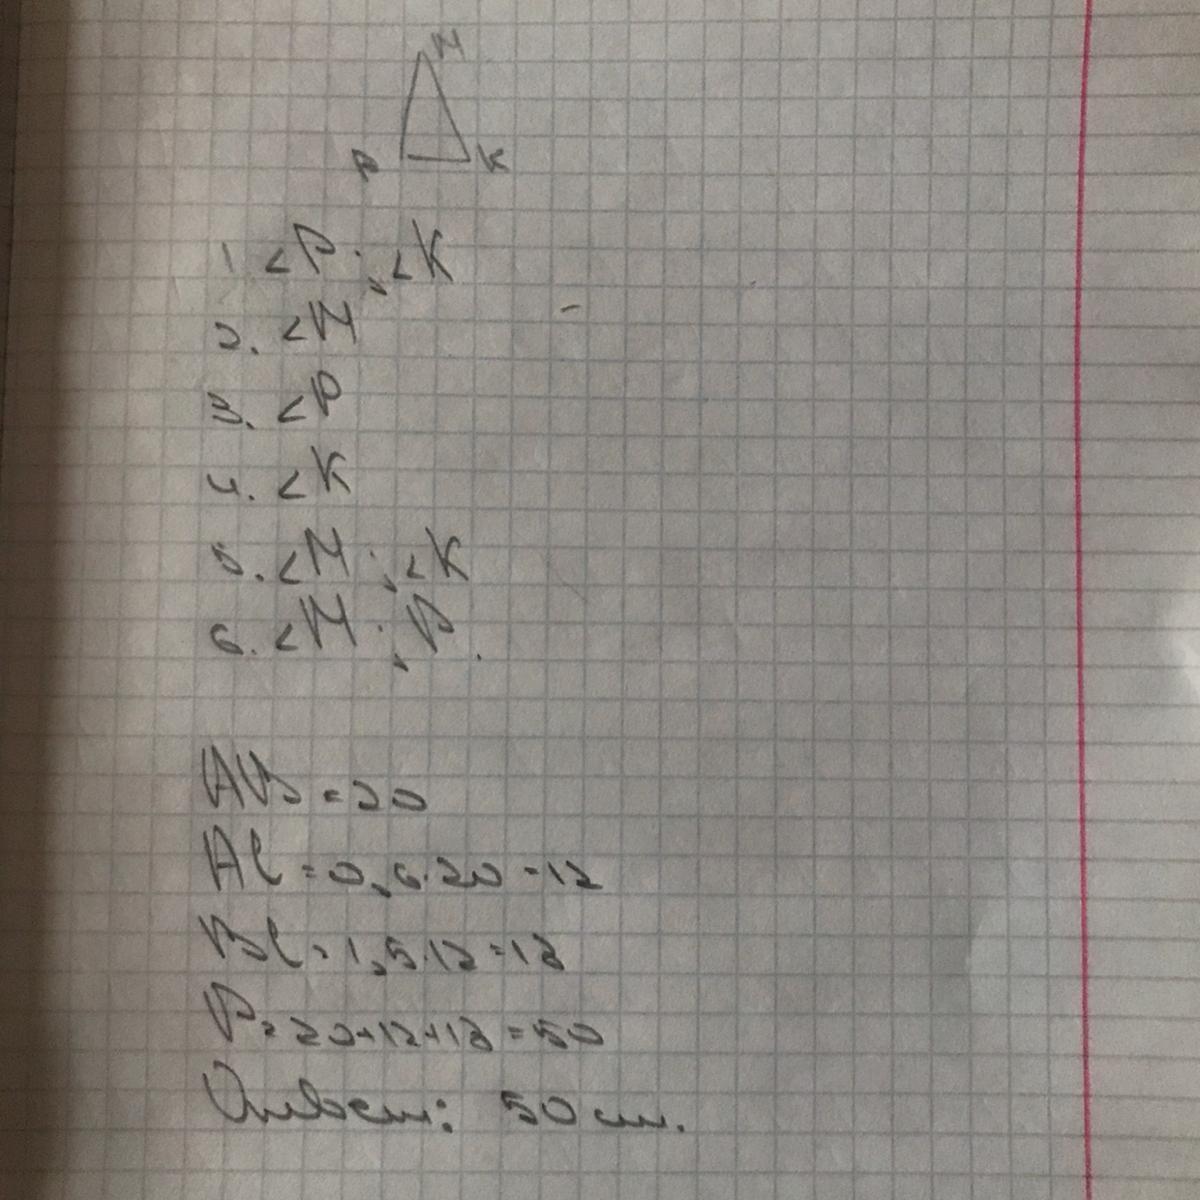 М
Р К
1 <Р ; <К
2. <М
3. <Р
4. <К
5. <М ; <К
6. <М ; Р.
АВ = 20
АС = 0,6·20 = 12
ВС = 1,5·12 = 18
Р = 20+12+18 = 50
Ответ: 50 см.